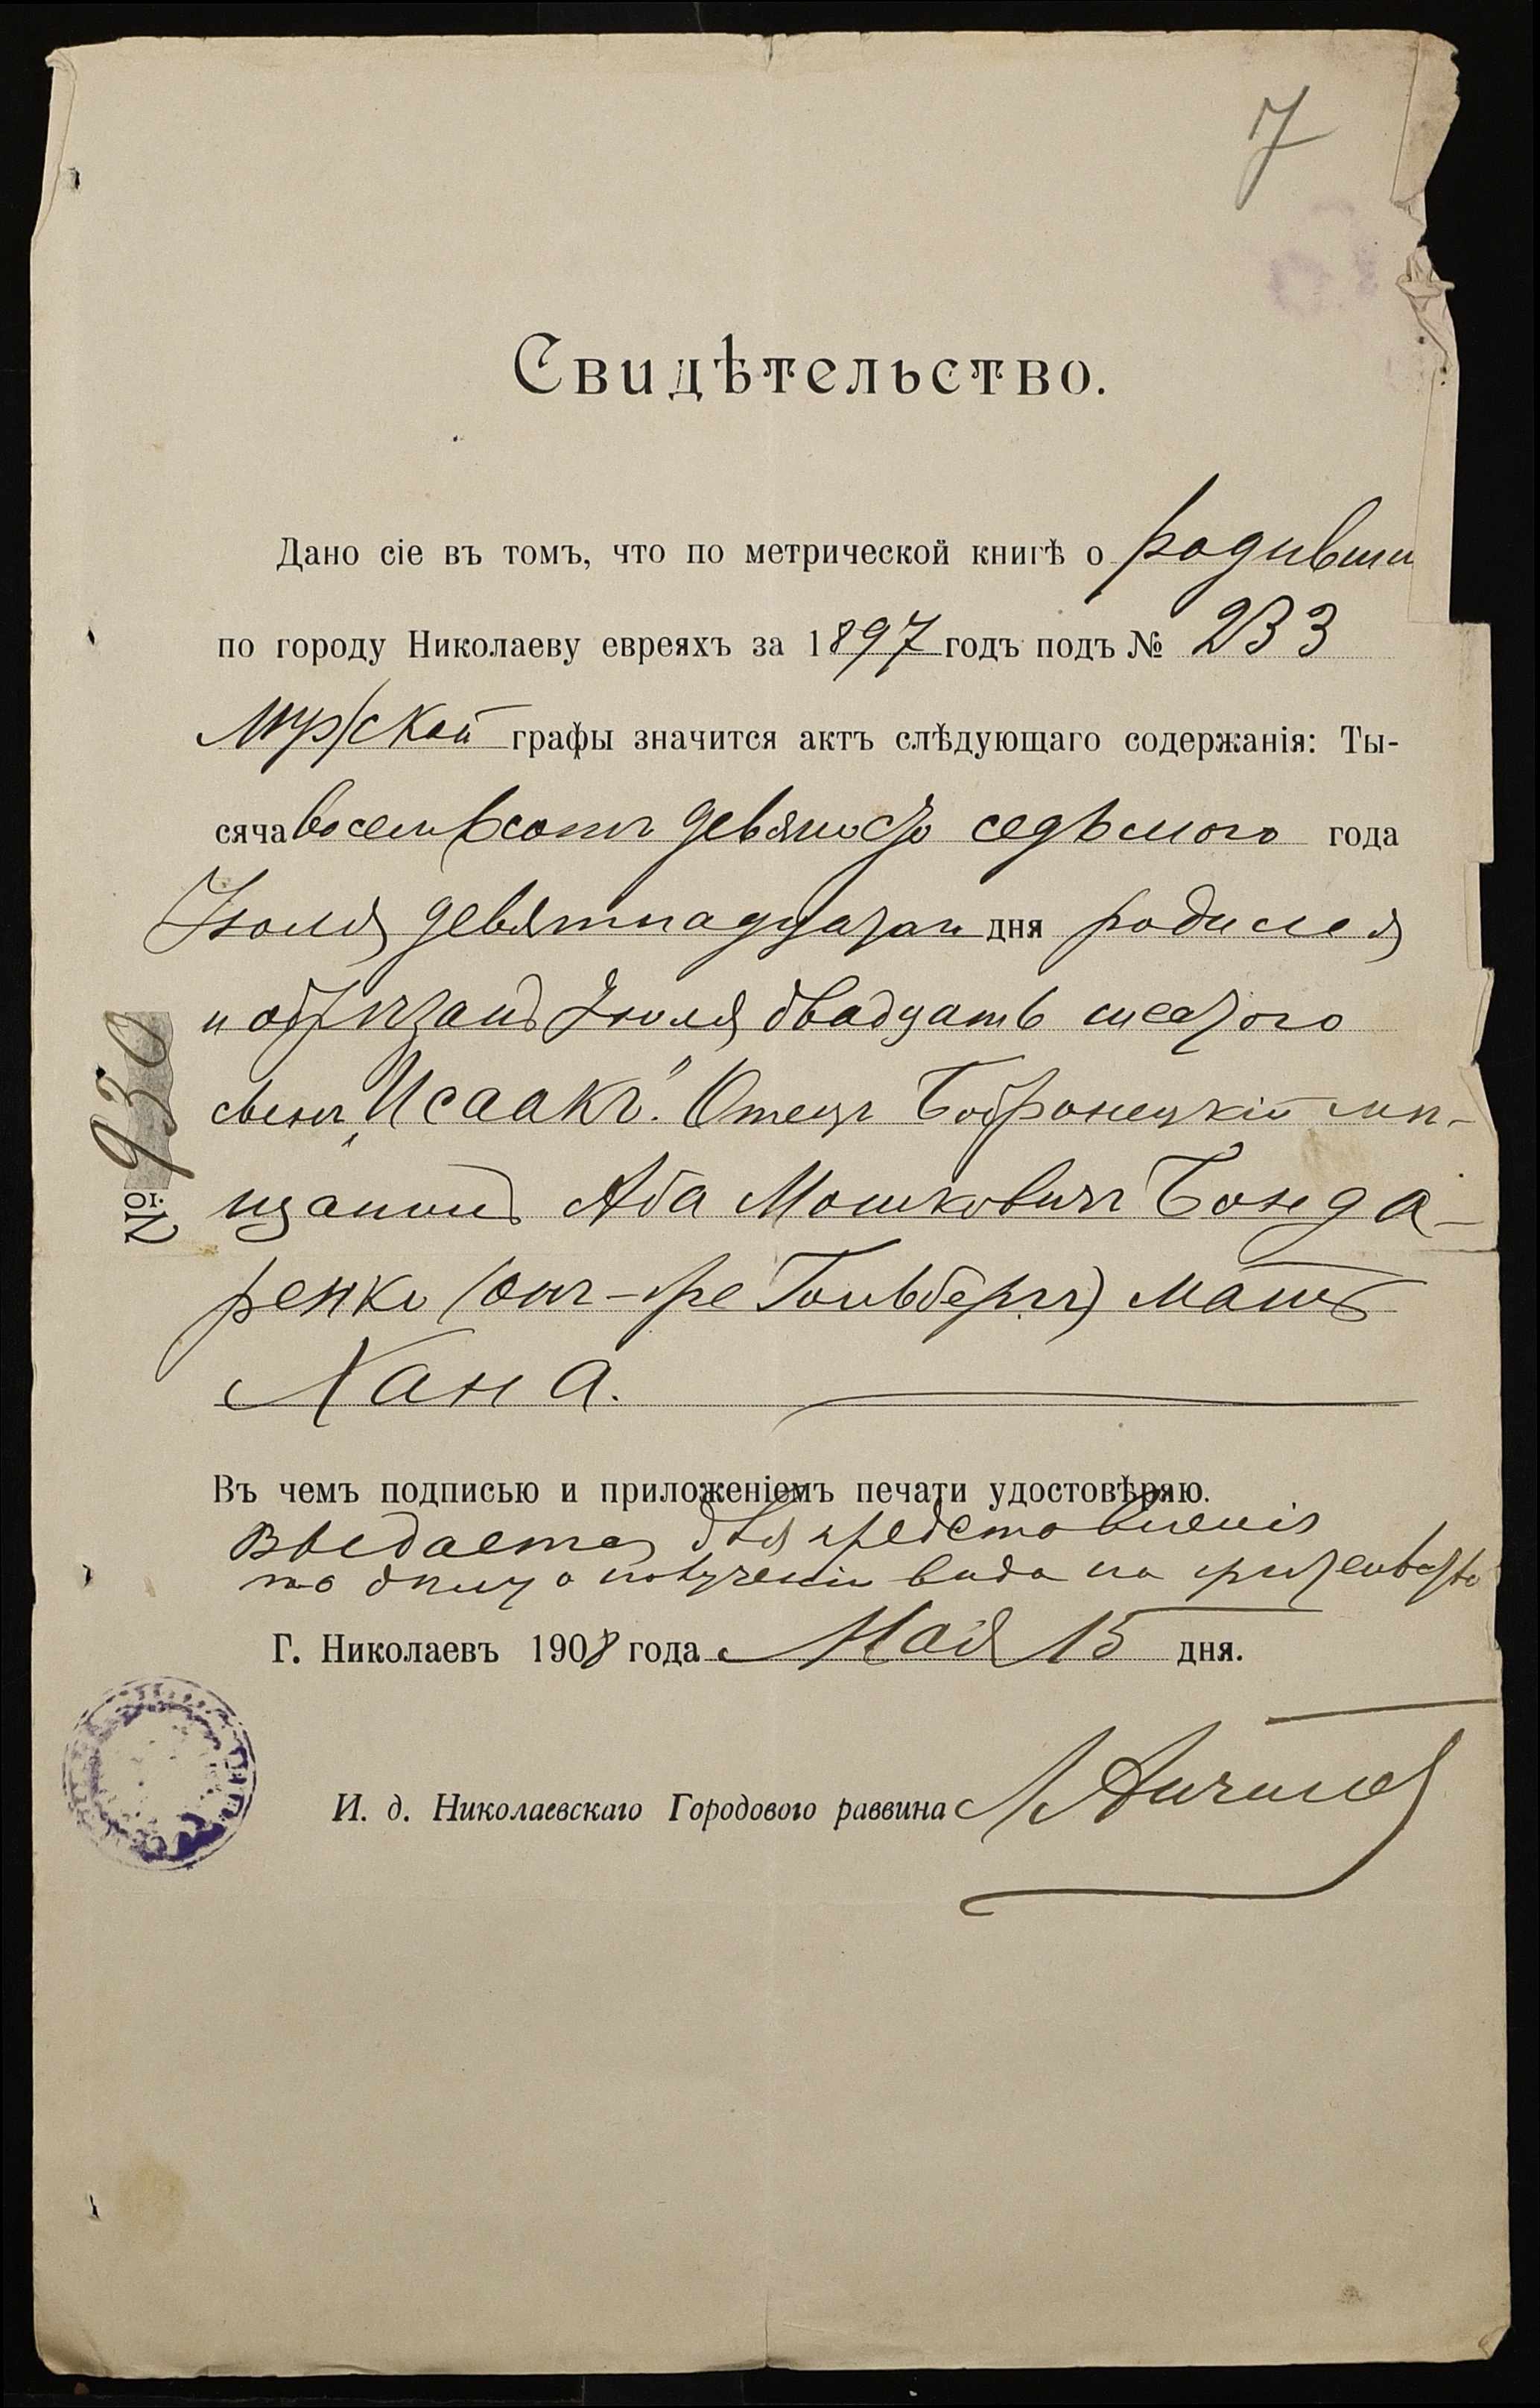 7
Свидѣтельство.
Дано сіе въ томъ, что по метрической книгѣ о родивши
по городу Николаеву евреяхъ за 1897 годъ подъ № 233
мужской графы значится актъ слѣдующаго содержанія: Ты-
сяча восемьсотъ девяносто седьмого года
Іюля девятнадцатаго дня родился
и обрѣзанъ Іюля двадцать шестого
сынъ „Исаакъ“. Отецъ Бобринецкій мѣ-
щанинъ Аба Мошковичъ Бонда-
ренко (онъ-же Гольбергъ) мать
Хана.
Въ чемъ подписью и приложеніемъ печати удостовѣряю.
Выдается для представленія
по дѣлу о полученіи вида на жительство
Г. Николаевъ 1908 года Мая 15 дня.
И. д. Николаевскаго Городового раввина
№ 930